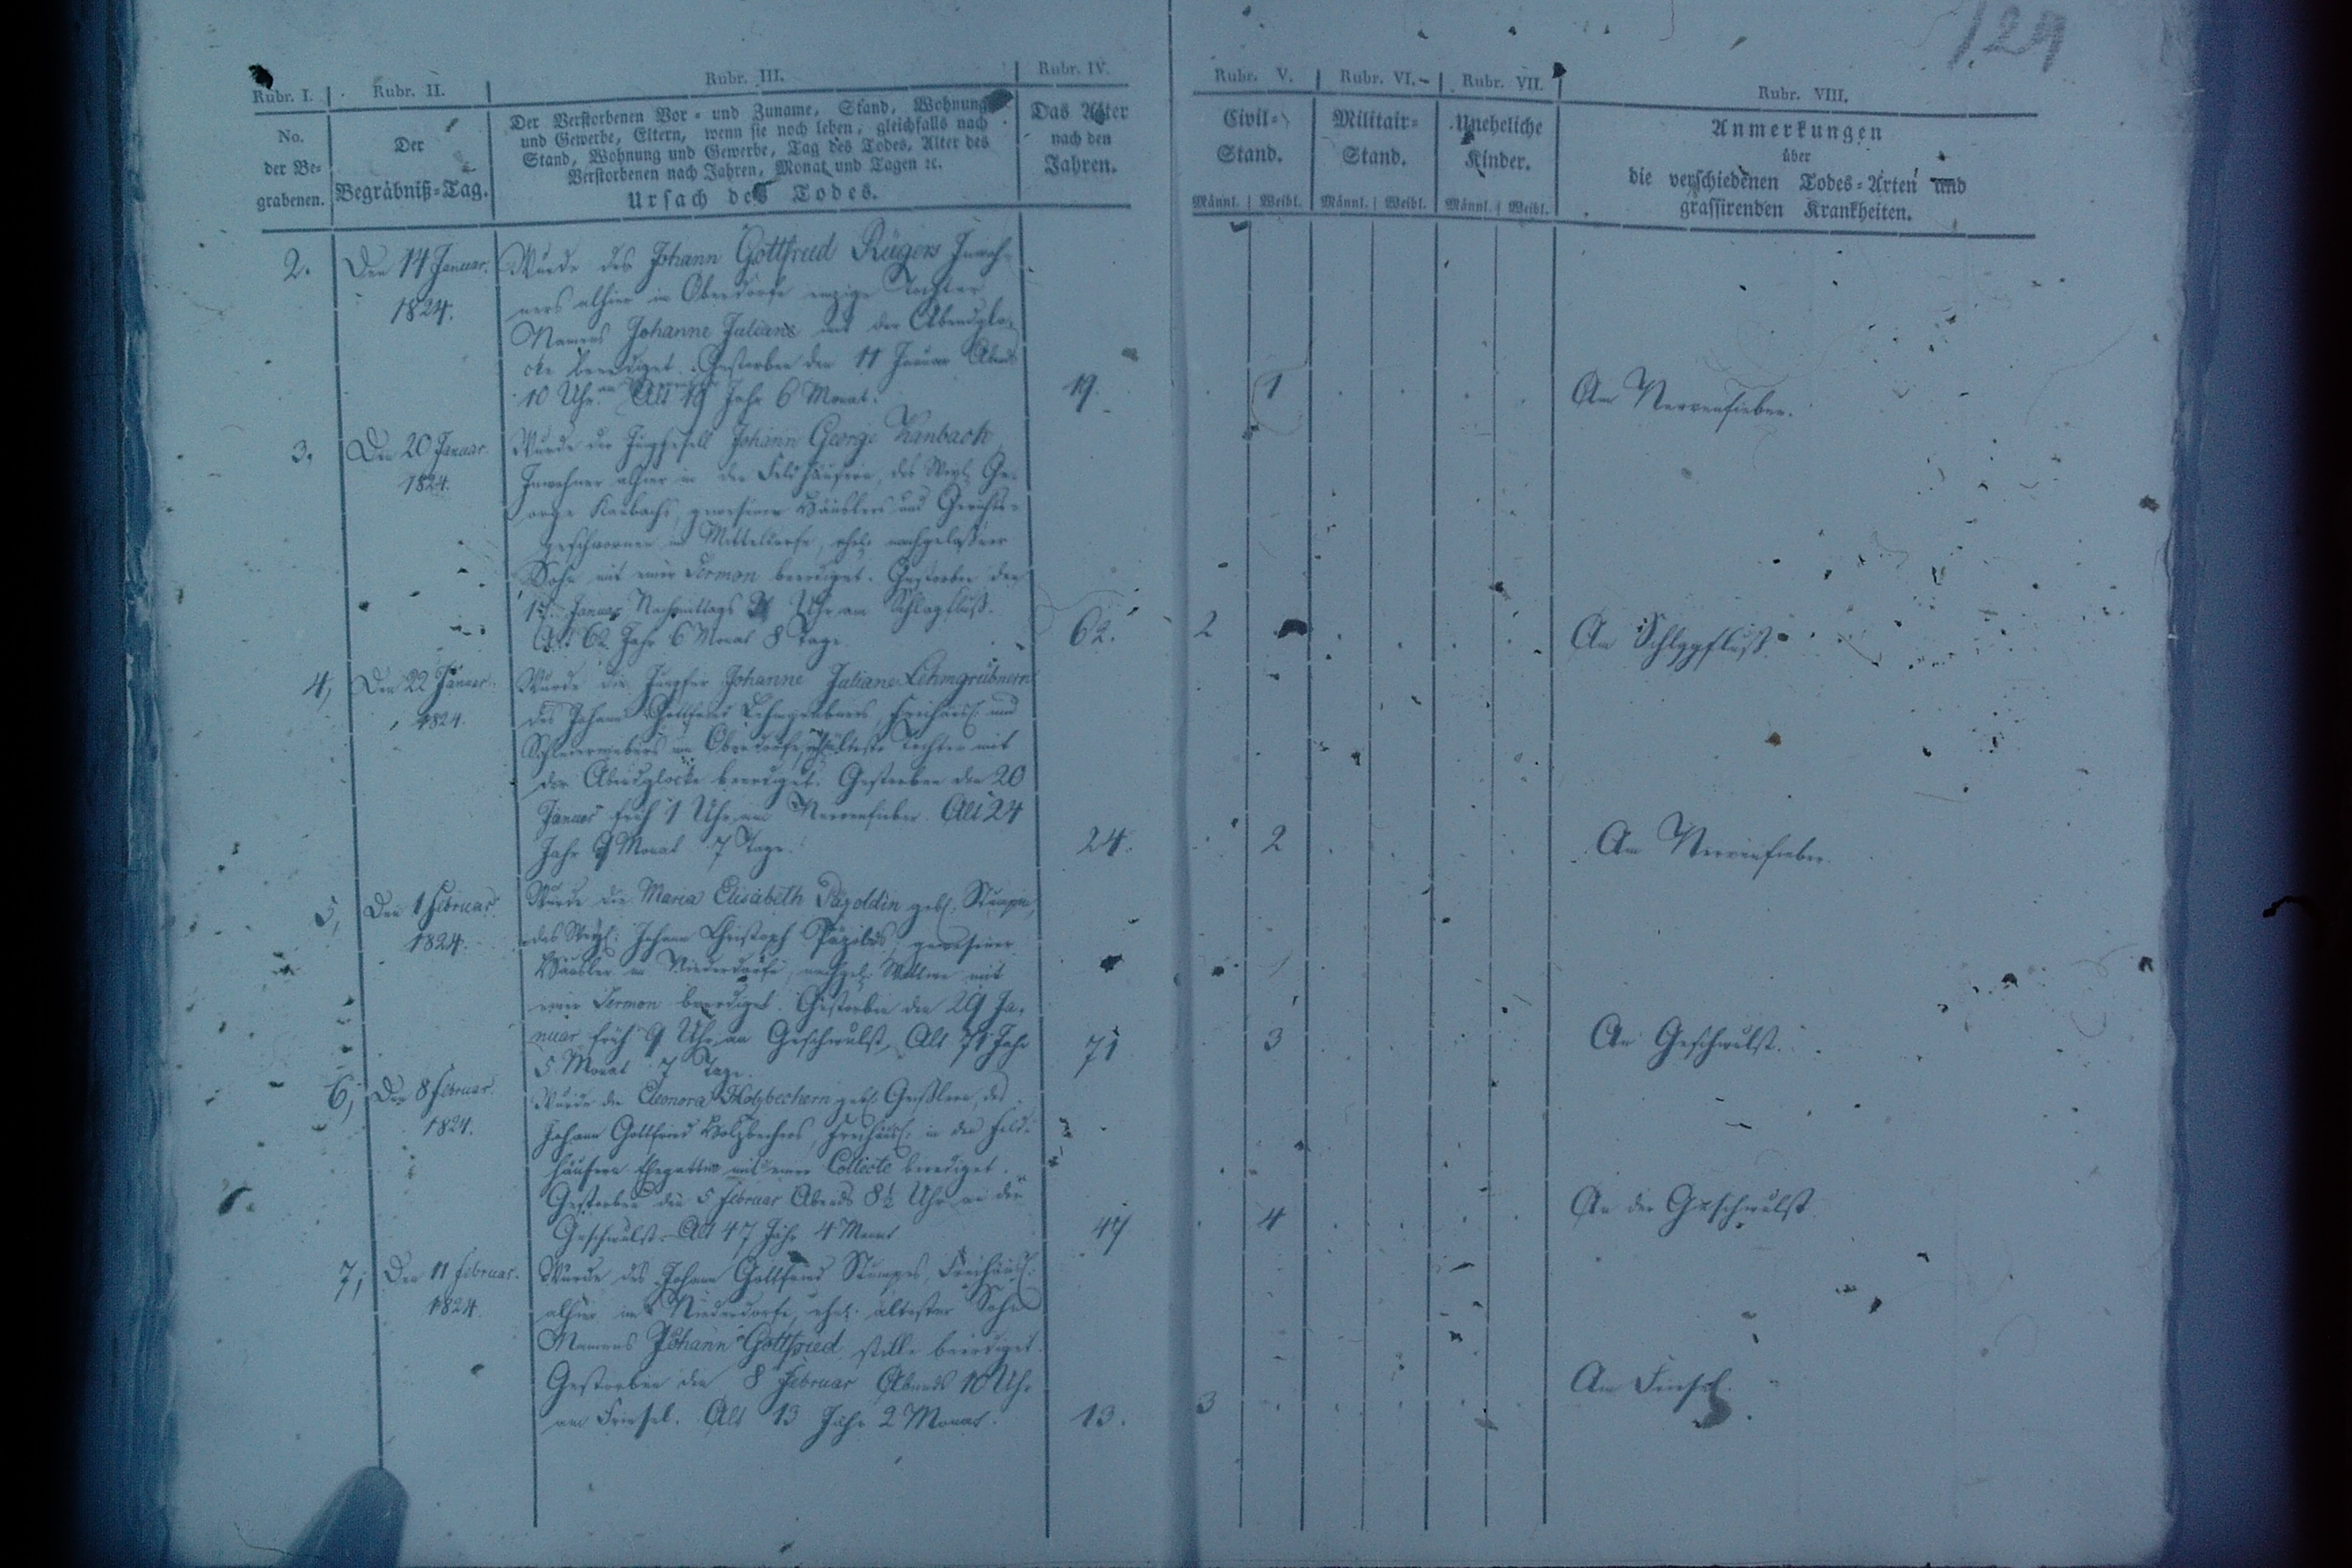 124
Rubr. I. Rubr. II. Rubr. III. Rubr. IV. Rubr. V. Rubr. VI. Rubr. VII. Rubr. VIII.
No.
der Be-
grabenen.
Der
Begräbniß-Tag.
Der Verstorbenen Vor- und Zuname, Stand, Wohnung
und Gewerbe, Eltern, wenn sie noch leben, gleichfalls nach
Stand, Wohnung und Gewerbe, Tag des Todes, Alter des
Verstorbenen nach Jahren, Monat und Tagen ꝛc.
Ursach des Todes.
Das Alter
nach den
Jahren.
Civil-
Stand.
Männl. Weibl.
Militair-
Stand.
Männl. Weibl.
Uneheliche
Kinder.
Männl. Weibl.
Anmerkungen
über
die verschiedenen Todes-Arten und
grassirenden Krankheiten.
2. Den 14 Januar.
1824.
Wurde des Johann Gottfried Rügers Inwoh-
ners alhier in Oberdorfe einzige Tochter
Namens Johanne Juliane mit der Abendglo-
cke beerdiget. Gestorben den 11 Januar Abends
10 Uhr. Alt 19 Jahr 6 Monat.
19. 1 Am Nervenfieber.
3. Den 20 Januar
1824.
Wurde der Junggesell Johann George
Inwohner alhier in den Feldhäusern, des Weyl. Ge-
orge gewesener Häuslers und Gerichts-
geschwornen in Mitteldorfe, ehel. nachgelaßner
Sohn mit einer Sermon beerdiget. Gestorben den
Januar Nachmittags Uhr am Schlagfluß.
Alt 62 Jahr 6 Monat 8 Tage.
62. 2 Am Schlagfluß.
4, Den 22 Januar
1824.
Wurde die Jungfer Johanne Juliane Lehmgrübnern
des Johann Gottfried Lehmgrübners, Freihäusl. und
Schleierwebers im Oberdorfe, älteste Tochter mit
der Abendglocke beerdiget. Gestorben den 20
Januar früh 1 Uhr am Nervenfieber. Alt 24
Jahr Monat 7 Tage.
24. 2 Am Nervenfieber.
5, Den 1 Februar.
1824.
Wurde die Maria Elisabeth Päzoldin geb.
des Weyl. Johann Christoph gewesener
Häusler in Niederdorfe, nachgel. Wittwe mit
einer Sermon beerdiget. Gestorben den 29 Ja-
nuar früh 9 Uhr an Geschwulst. Alt 71 Jahr
5 Monat 7 Tage.
71 3 An Geschwulst.
6, Den 8 Februar.
1824.
Wurde die Eleonora Holzbechern geb. Geißlern, des
Johann Gottfried Holzbechers, Freihäusl. in den Feld-
häusern Ehegattin mit einer Collecte beerdiget.
Gestorben den 5 Februar Abends 8½ Uhr an der
Geschwulst. Alt 47 Jahr 4 Monat
47 4 An der Geschwulst
7, Den 11 Februar.
1824.
Wurde des Johann Gottfried Stumpes, Freihäusl.
alhier im Niederdorfe, ehel. ältester Sohn
Namens Johann Gottfried stille beerdiget.
Gestorben den 8 Februar Abends 10 Uhr
am Friesel. Alt 13 Jahr 2 Monat.
13. 3 Am Friesel.